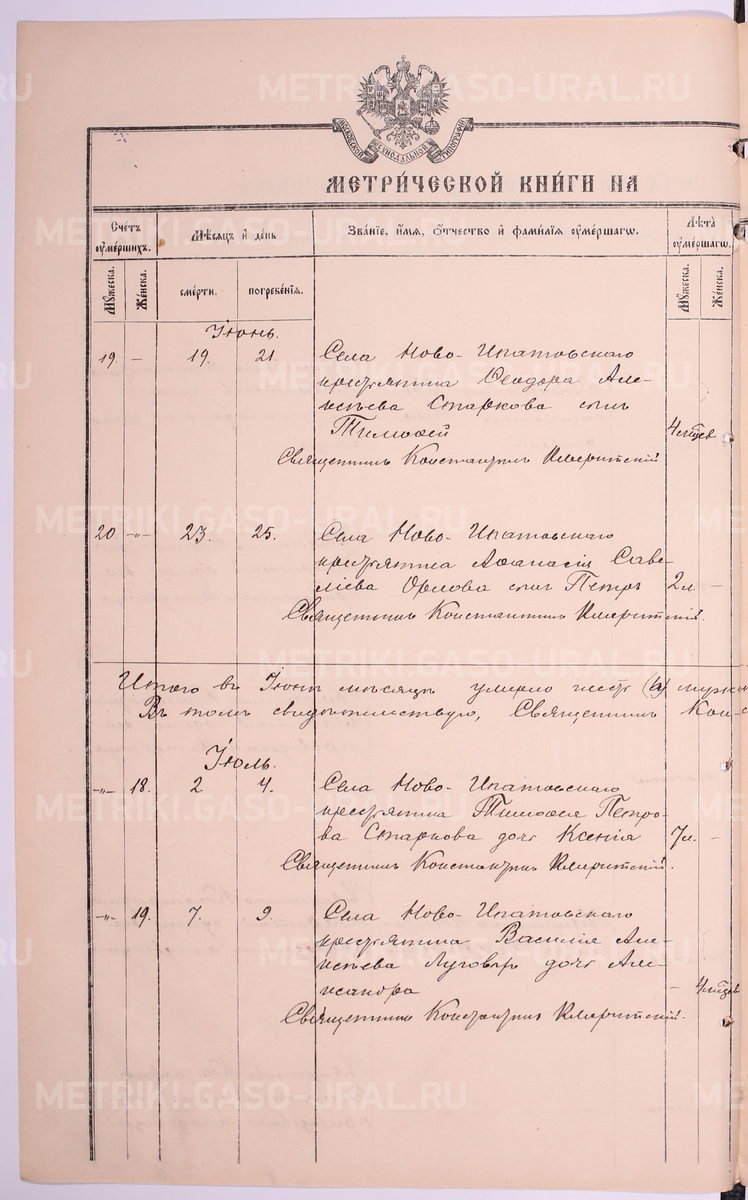 МОСКОВСКОЙ СѴНОДАЛЬНОЙ ТИПОГРАФІИ
МЕТРИ́ЧЕСКОЙ КНИ́ГИ НА
Сче́тъ ᲂумершихъ.
Мѣсяцъ и҆ де́нь
Зва́нїе, и҆́мя, ѻ҆́тчество и҆ фами́лїя ᲂу҆ме́ршагѡ.
Лѣ́та ᲂу҆ме́ршагѡ.
Мꙋ́жеска.
Же́нска.
сме́рти.
погребе́нїѧ.
Мꙋ́жеска.
Же́нска.
Іюнь.
19. — 19. 21. Села Ново-Ипатовскаго
крестьянина Ѳеодора Але-
ксѣева Старкова сынъ
Тимоѳей 4 мѣсѣ
Священникъ Константинъ Имеритскій
20. -"- 23. 25. Села Ново-Ипатовскаго
крестьянина Аѳанасія Саве-
ліева Орлова сынъ Петръ 2 л. -
Священникъ Константинъ Имеритскій.
Итого въ Іюнѣ мѣсяцѣ умерло шесть (6)
Въ томъ свидѣтельствую, Священникъ Кон-
Іюль.
-"- 18. 2 4. Села Ново-Ипатовскаго
крестьянина Тимоѳея Петро-
ва Старкова дочь Ксенія 7 л. -
Священникъ Константинъ Имеритскій.
-"- 19. 7. 9. Села Ново-Ипатовскаго
крестьянина Василія Але-
ксѣева Луговыхъ дочь Але-
ксандра - 4
Священникъ Константинъ Имеритскій.
METRIKI.GASO-URAL.RU